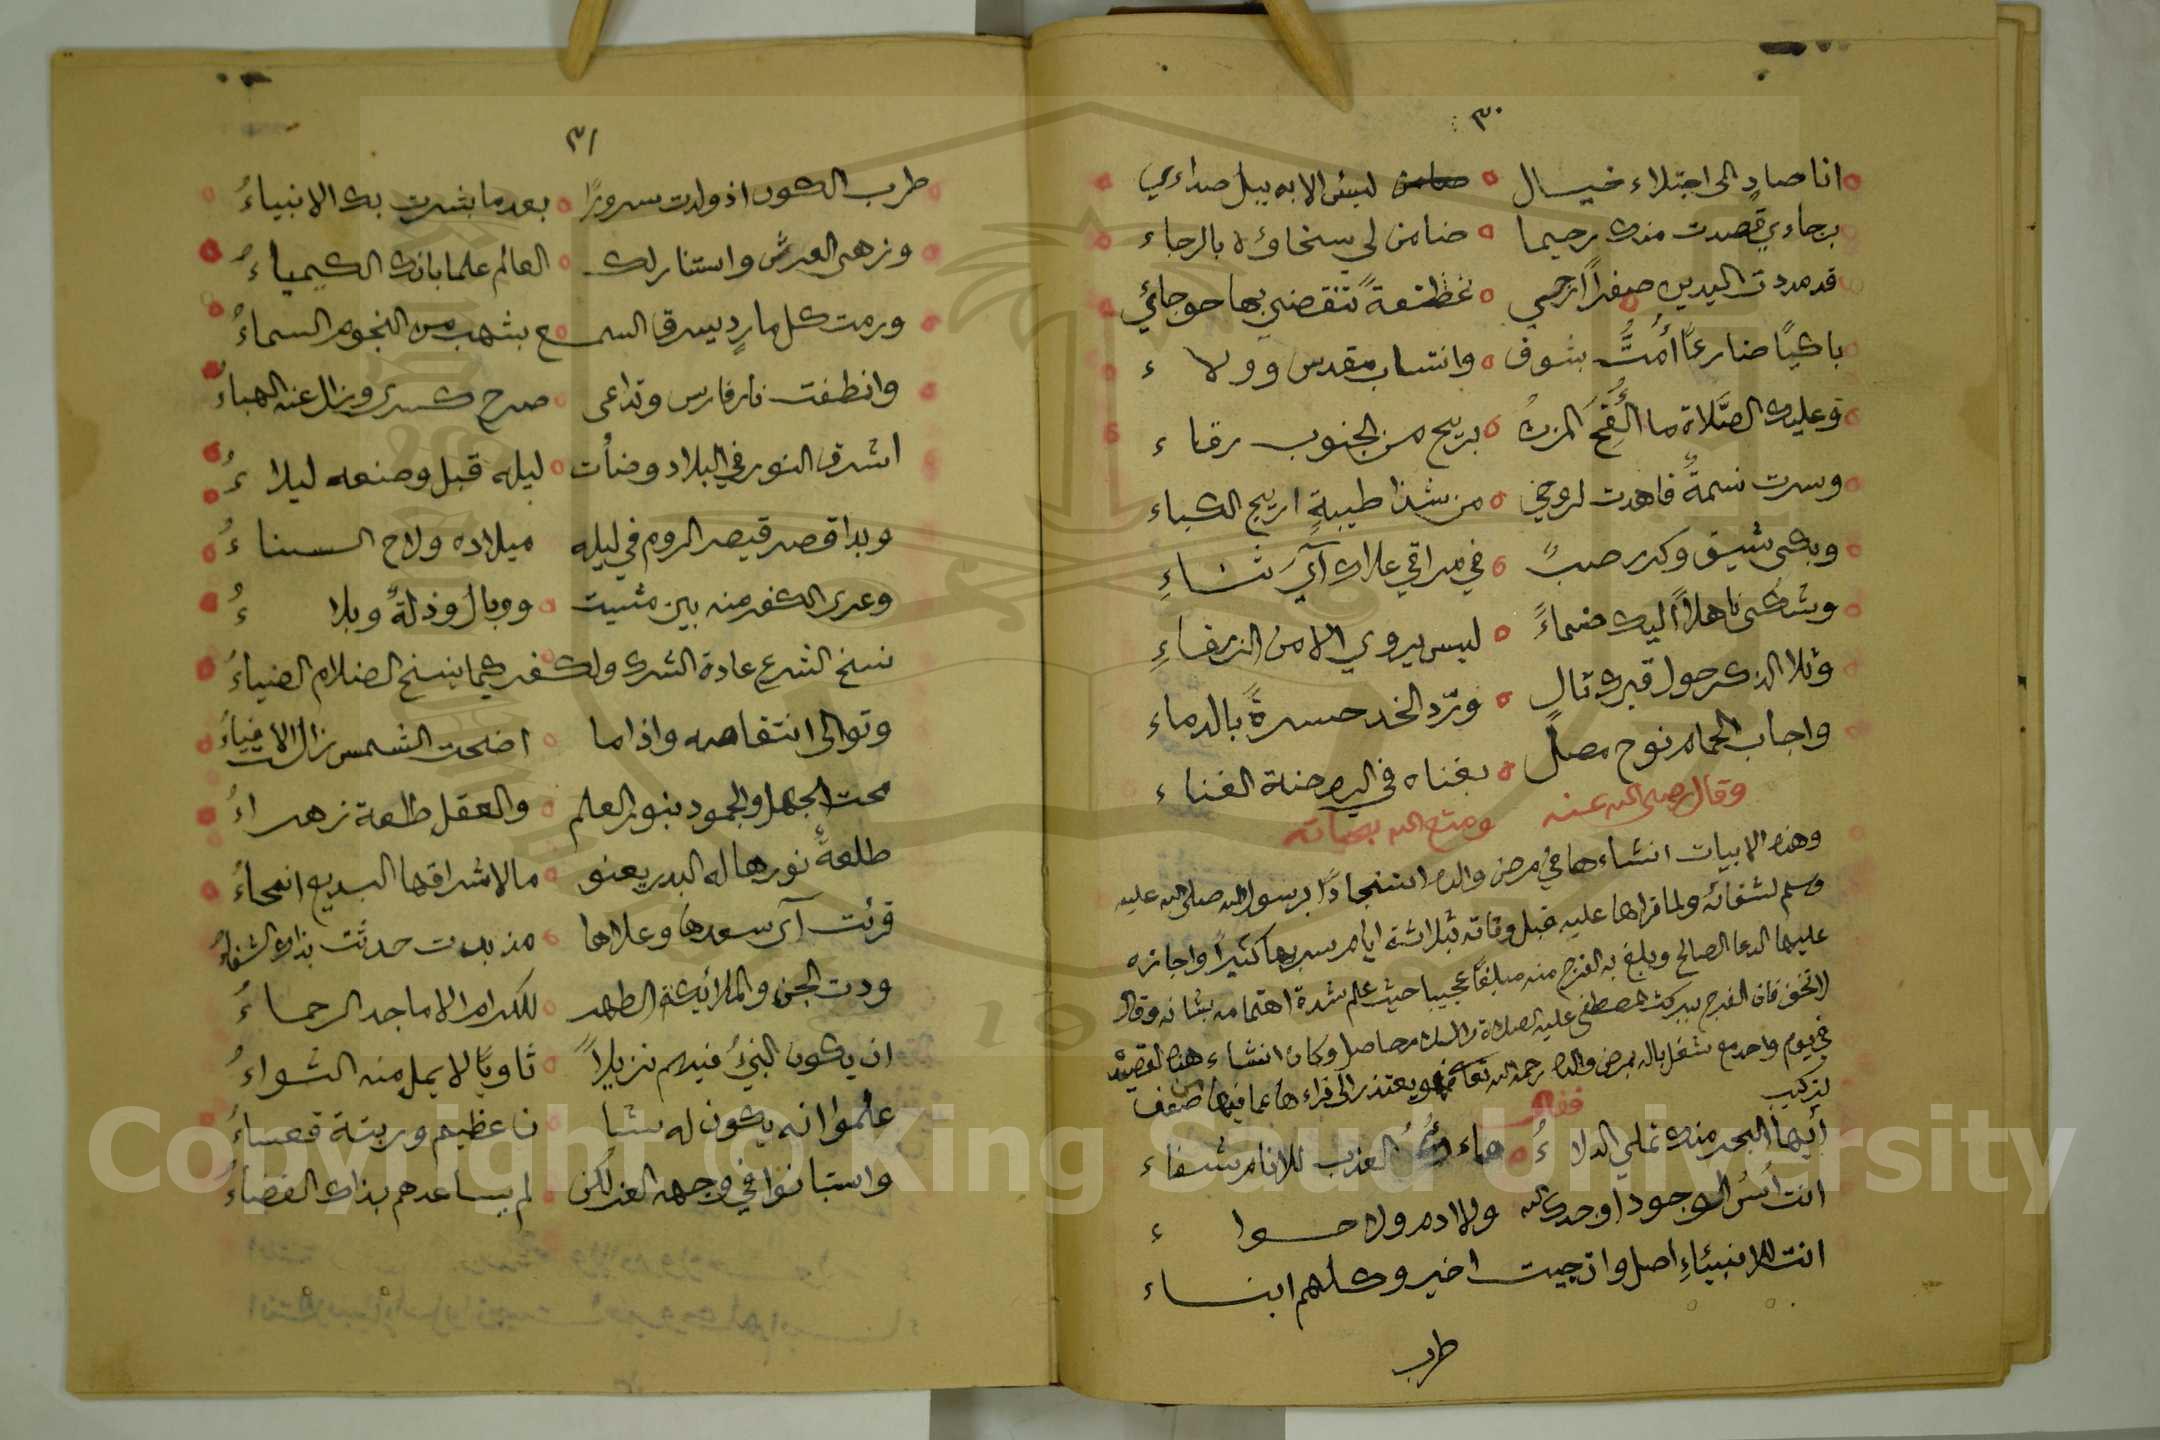 ٣٠
انا صادٍ الى اجتلاء خيال ليس الا به يبل صداءي
برجاءي قصدت منك رحيما ضامن لي سخاؤه بالرجاء
قد مددت اليدين صفراً ارجي تنقضي بها حوجائي
باكيًا ضارعًا أمتُّ بشوق وانتساب مقدس وولاء
وعليك الصَّلاة ما المزن بريح من الجنوب رقاء
وسرت نسمةٌ فاهدت لروحي من شذا طيبةٍ اريج الكباء
وبكى شيق وكرر صبٌ في مراقي علاك آيَ ثناءِ
وشكى ناهلاً اليك ضماءً ليس يروي الا من الزرقاءِ
وتلا الذكر حول قبرك تال ورّد الخد حسرةً بالدماء
واجاب الحمام نوح مصلٍ بغناه في الروضة الغناء
وقال رضى الله عنه ومتع الله بحياته
وهذه الابيات انشاءها في مرض والده استنجادًا برسول الله صلى الله عليه
وسلم لشفائه ولما قراها عليه قبل وفاته بثلاثة ايام سر بها كثيراً واجازه
عليها الدعا الصالح وبلغ به الفرح منه مبلغًا عجيبا حيث علم شدة اهتمامه بشانه وقال
لا تخف فان الفرج ببركة المصطفى عليه الصلاة والسلام حاصل وكان انشاء هذه القصيدة
في يوم واحد مع شغل باله بمرض والده رحمه الله تعالى فهو يعتذر الى قراءها عما فيها من ضعف
تركيب
فقال
أيها البحر منك تملى الدلاءُ ماء العذب للانام شفاء
انت أسُ الوجود اوحدك الله ولا ادم ولا حواء
انت للانبيئاءِ اصل وان جيت اخير وكلهم ابناء
طرب
٣١
طرب الكون اذ ولدت سرورًا بعدما بشرت بك الانبياءُ
وزهى العرش واستنار لك العالم علما بانك الكيمياءُ
ورمت كل ماردٍ يسرق السمع بشهب من النجوم السماءُ
وانطفت نار فارس وتداعى صرح كسرى وزال عنه الهباءُ
اشرق النور في البلاد وضأت ليله قبل وضعه ليلاءُ
وبدا قصر قيصر الروم في ليله ميلاده ولاح السناءُ
وعرى الكفر منه بين مشيت ووبالٌ وذلةٌ وبلاءُ
نسخ الشرع عادة الشرك ولكفر كما ينسخ الضلام الضياءُ
وتوالى انتقاصه واذا ما اضحت الشمس زالت الافياءُ
محت الجهل والجمود بنور العلم والعقل طلعة زهراءُ
طلعةٌ نورها له البدر يعنو ما لاشراقها البديع انمحاءُ
قرئت آى سعدها وعلاها مذ بدت حدثت بذاك الشفاءُ
ودت الجن والملائكة الطهر للكرام الاماجد الرحماءُ
ان يكون النبيُ فيهم نزيلاً ثاويًا لا يمل منه الثواءُ
علموا انه يكون له شا ن عظيم ورتبة قعساءُ
واستبانوا في وجهه العز لكن لم يساعدهم بذاك القضاءُ
Copyright © King Saud University